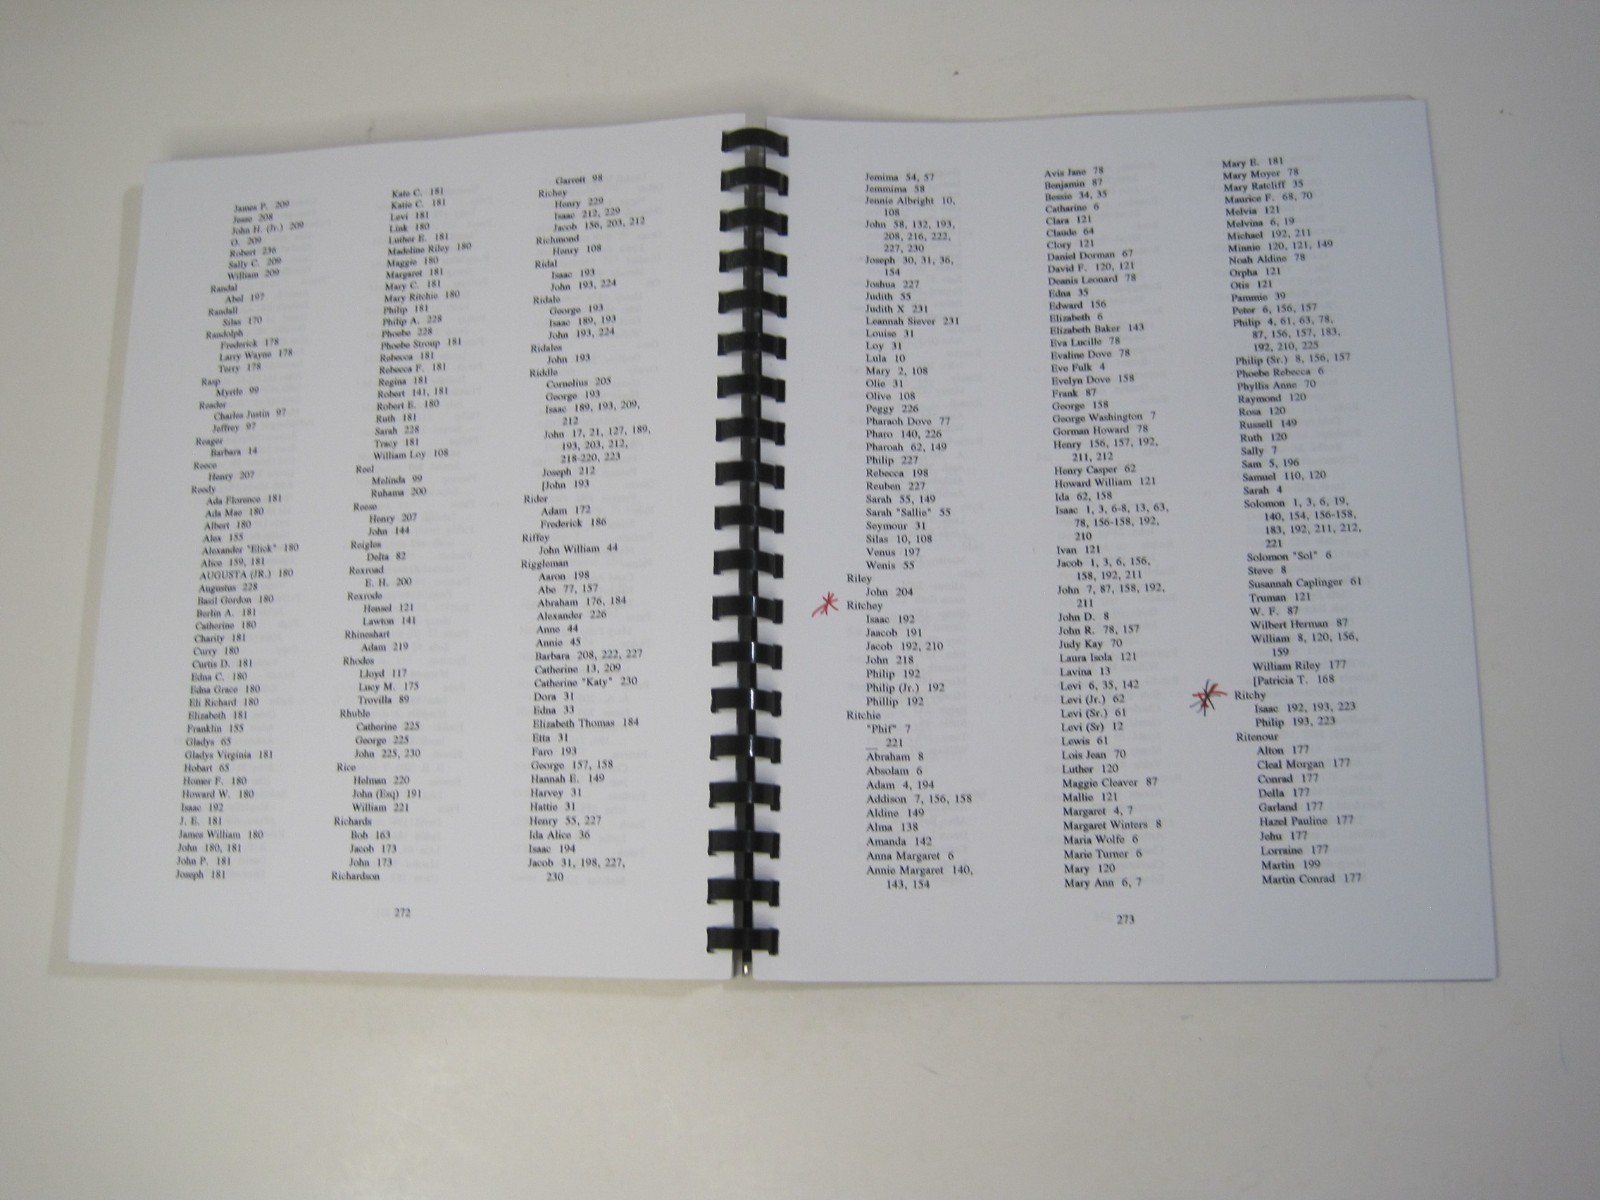 James P. 209
Jesse 208
John H. (Jr.) 209
O. 209
Robert 236
Sally C. 209
William 209
Randal
Abel 197
Randall
Silas 170
Randolph
Frederick 178
Larry Wayne 178
Terry 178
Rasp
Myrtle 99
Reader
Charles Justin 97
Jeffrey 97
Reager
Barbara 14
Reece
Henry 207
Reedy
Ada Florence 181
Ada Mae 180
Albert 180
Alex 155
Alexander "Elick" 180
Alice 159, 181
AUGUSTA (JR.) 180
Augustus 228
Basil Gordon 180
Berlin A. 181
Catherine 180
Charity 181
Curry 180
Curtis D. 181
Edna C. 180
Edna Grace 180
Eli Richard 180
Elizabeth 181
Franklin 155
Gladys 65
Gladys Virginia 181
Hobart 65
Homer F. 180
Howard W. 180
Isaac 192
J. E. 181
James William 180
John 180, 181
John P. 181
Joseph 181
Kate C. 181
Katie C. 181
Levi 181
Link 180
Luther E. 181
Madeline Riley 180
Maggie 180
Margaret 181
Mary C. 181
Mary Ritchie 180
Philip 181
Philip A. 228
Phoebe 228
Phoebe Stroup 181
Rebecca 181
Rebecca F. 181
Regina 181
Robert 141, 181
Robert E. 180
Ruth 181
Sarah 228
Tracy 181
William Loy 108
Reel
Melinda 99
Ruhama 200
Reese
Henry 207
John 144
Reigles
Delta 82
Rexroad
E. H. 200
Rexrode
Hensel 121
Lawton 141
Rhineshart
Adam 219
Rhodes
Lloyd 117
Lucy M. 175
Trovilla 89
Rhuble
Catherine 225
George 225
John 225, 230
Rice
Helman 220
John (Esq) 191
William 221
Richards
Bob 163
Jacob 173
John 173
Richardson
Garrett 98
Richey
Henry 229
Isaac 212, 229
Jacob 156, 203, 212
Richmond
Henry 108
Ridal
Isaac 193
John 193, 224
Ridale
George 193
Isaac 189, 193
John 193, 224
Ridales
John 193
Riddle
Cornelius 205
George 193
Isaac 189, 193, 209,
212
John 17, 21, 127, 189,
193, 203, 212,
218-220, 223
Joseph 212
[John 193
Rider
Adam 172
Frederick 186
Riffey
John William 44
Riggleman
Aaron 198
Abe 77, 157
Abraham 176, 184
Alexander 226
Anne 44
Annie 45
Barbara 208, 222, 227
Catherine 13, 209
Catherine "Katy" 230
Dora 31
Edna 33
Elizabeth Thomas 184
Etta 31
Faro 193
George 157, 158
Hannah E. 149
Harvey 31
Hattie 31
Henry 55, 227
Ida Alice 36
Isaac 194
Jacob 31, 198, 227,
230
272
Jemima 54, 57
Jemmima 58
Jennie Albright 10,
108
John 58, 132, 193,
208, 216, 222,
227, 230
Joseph 30, 31, 36,
154
Joshua 227
Judith 55
Judith X 231
Leannah Siever 231
Louise 31
Loy 31
Lula 10
Mary 2, 108
Olie 31
Olive 108
Peggy 226
Pharaoh Dove 77
Pharo 140, 226
Pharoah 62, 149
Philip 227
Rebecca 198
Reuben 227
Sarah 55, 149
Sarah "Sallie" 55
Seymour 31
Silas 10, 108
Venus 197
Wenis 55
Riley
John 204
Ritchey
Isaac 192
Jaacob 191
Jacob 192, 210
John 218
Philip 192
Philip (Jr.) 192
Phillip 192
Ritchie
"Phif" 7
__ 221
Abraham 8
Absolam 6
Adam 4, 194
Addison 7, 156, 158
Aldine 149
Alma 138
Amanda 142
Anna Margaret 6
Annie Margaret 140,
143, 154
Avis Jane 78
Benjamin 87
Bessie 34, 35
Catharine 6
Clara 121
Claude 64
Clory 121
Daniel Dorman 67
David F. 120, 121
Dennis Leonard 78
Edna 35
Edward 156
Elizabeth 6
Elizabeth Baker 143
Eva Lucille 78
Evaline Dove 78
Eve Fulk 4
Evelyn Dove 158
Frank 87
George 158
George Washington 7
Gorman Howard 78
Henry 156, 157, 192,
211, 212
Henry Casper 62
Howard William 121
Ida 62, 158
Isaac 1, 3, 6-8, 13, 63,
78, 156-158, 192,
210
Ivan 121
Jacob 1, 3, 6, 156,
158, 192, 211
John 7, 87, 158, 192,
211
John D. 8
John R. 78, 157
Judy Kay 70
Laura Isola 121
Lavina 13
Levi 6, 35, 142
Levi (Jr.) 62
Levi (Sr.) 61
Levi (Sr) 12
Lewis 61
Lois Jean 70
Luther 120
Maggie Cleaver 87
Mallie 121
Margaret 4, 7
Margaret Winters 8
Maria Wolfe 6
Marie Turner 6
Mary 120
Mary Ann 6, 7
Mary E. 181
Mary Moyer 78
Mary Ratcliff 35
Maurice F. 68, 70
Melvia 121
Melvina 6, 19
Michael 192, 211
Minnie 120, 121, 149
Noah Aldine 78
Orpha 121
Otis 121
Pammie 39
Peter 6, 156, 157
Philip 4, 61, 63, 78,
87, 156, 157, 183,
192, 210, 225
Philip (Sr.) 8, 156, 157
Phoebe Rebecca 6
Phyllis Anne 70
Raymond 120
Rosa 120
Russell 149
Ruth 120
Sally 7
Sam 5, 196
Samuel 110, 120
Sarah 4
Solomon 1, 3, 6, 19,
140, 154, 156-158,
183, 192, 211, 212,
221
Solomon "Sol" 6
Steve 8
Susannah Caplinger 61
Truman 121
W. F. 87
Wilbert Herman 87
William 8, 120, 156,
159
William Riley 177
[Patricia T. 168
Ritchy
Isaac 192, 193, 223
Philip 193, 223
Ritenour
Alton 177
Cleal Morgan 177
Conrad 177
Della 177
Garland 177
Hazel Pauline 177
Jehu 177
Lorraine 177
Martin 199
Martin Conrad 177
273